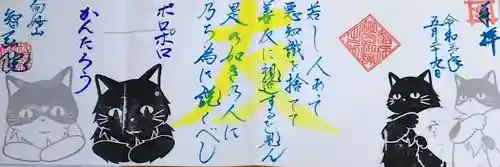 奉拝
令和三年
五月二十九日
若し人あって
悪知識を捨てて
善友に親近するを見ん
是の如きの人に
乃ち為に説くべし
ポロポロ
かんたろう
向野山
智玉院